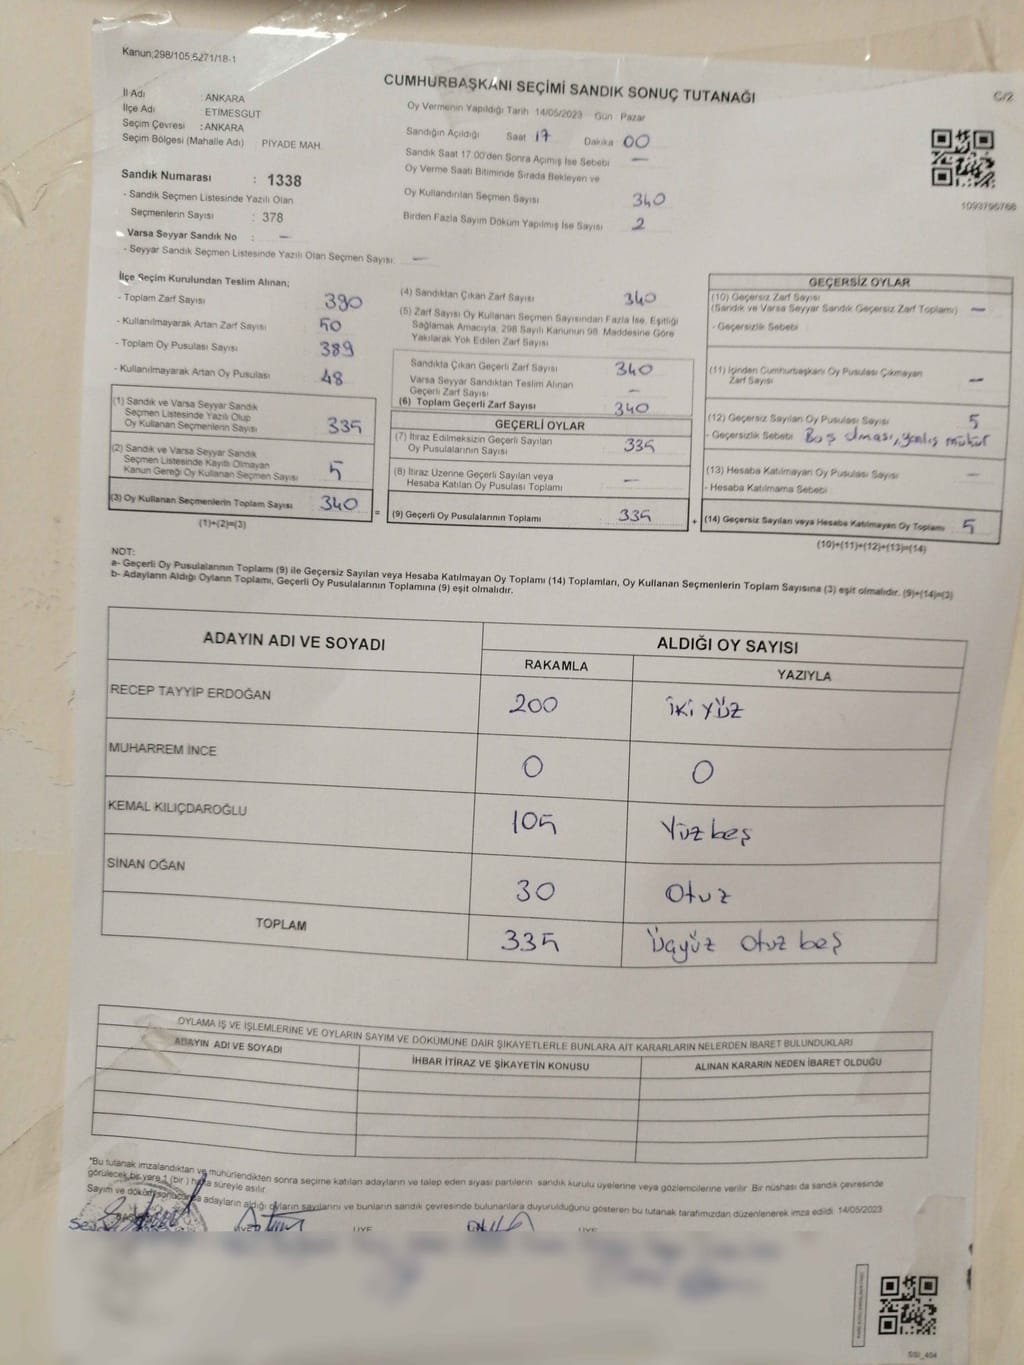 Kanun;298/105,5271/18-1
CUMHURBAŞKANI SEÇİMİ SANDIK SONUÇ TUTANAĞI
C/2
İl Adı : ANKARA
İlçe Adı : ETİMESGUT
Seçim Çevresi : ANKARA
Seçim Bölgesi (Mahalle Adı) PİYADE MAH.
Oy Vermenin Yapıldığı Tarih 14/05/2023 Gün Pazar
Sandığın Açıldığı Saat 17 Dakika 00
Sandık Saat 17.00'den Sonra Açımış İse Sebebi —
Oy Verme Saati Bitiminde Sırada Bekleyen ve
Oy Kullandırılan Seçmen Sayısı 340
Birden Fazla Sayım Döküm Yapılmış İse Sayısı 2
1093796766
Sandık Numarası : 1338
- Sandık Seçmen Listesinde Yazılı Olan
Seçmenlerin Sayısı : 378
- Varsa Seyyar Sandık No : —
- Seyyar Sandık Seçmen Listesinde Yazılı Olan Seçmen Sayısı: —
İlçe Seçim Kurulundan Teslim Alınan;
- Toplam Zarf Sayısı 390
- Kullanılmayarak Artan Zarf Sayısı 50
- Toplam Oy Pusulası Sayısı 389
- Kullanılmayarak Artan Oy Pusulası 48
(1) Sandık ve Varsa Seyyar Sandık
Seçmen Listesinde Yazılı Olup
Oy Kullanan Seçmenlerin Sayısı 335
(2) Sandık ve Varsa Seyyar Sandık
Seçmen Listesinde Kayıtlı Olmayan
Kanun Gereği Oy Kullanan Seçmen Sayısı 5
(3) Oy Kullanan Seçmenlerin Toplam Sayısı 340
(1)+(2)=(3)
(4) Sandıktan Çıkan Zarf Sayısı 340
(5) Zarf Sayısı Oy Kullanan Seçmen Sayısından Fazla İse, Eşitliği
Sağlamak Amacıyla, 298 Sayılı Kanunun 98. Maddesine Göre
Yakılarak Yok Edilen Zarf Sayısı
Sandıkta Çıkan Geçerli Zarf Sayısı 340
Varsa Seyyar Sandıktan Teslim Alınan
Geçerli Zarf Sayısı —
(6) Toplam Geçerli Zarf Sayısı 340
GEÇERLİ OYLAR
(7) İtiraz Edilmeksizin Geçerli Sayılan
Oy Pusulalarının Sayısı 335
(8) İtiraz Üzerine Geçerli Sayılan veya
Hesaba Katılan Oy Pusulası Toplamı —
= (9) Geçerli Oy Pusulalarının Toplamı 335
GEÇERSİZ OYLAR
(10) Geçersiz Zarf Sayısı
(Sandık ve Varsa Seyyar Sandık Geçersiz Zarf Toplamı) —
- Geçersizlik Sebebi
(11) İçinden Cumhurbaşkanı Oy Pusulası Çıkmayan
Zarf Sayısı —
(12) Geçersiz Sayılan Oy Pusulası Sayısı 5
- Geçersizlik Sebebi Boş olması, yanlış mühür
(13) Hesaba Katılmayan Oy Pusulası Sayısı —
- Hesaba Katılmama Sebebi
+ (14) Geçersiz Sayılan veya Hesaba Katılmayan Oy Toplamı 5
(10)+(11)+(12)+(13)=(14)
NOT:
a- Geçerli Oy Pusulalarının Toplamı (9) ile Geçersiz Sayılan veya Hesaba Katılmayan Oy Toplamı (14) Toplamları, Oy Kullanan Seçmenlerin Toplam Sayısına (3) eşit olmalıdır. (9)+(14)=(3)
b- Adayların Aldığı Oyların Toplamı, Geçerli Oy Pusulalarının Toplamına (9) eşit olmalıdır.
ADAYIN ADI VE SOYADI
ALDIĞI OY SAYISI
RAKAMLA YAZIYLA
RECEP TAYYİP ERDOĞAN 200 İki YÜZ
MUHARREM İNCE 0 0
KEMAL KILIÇDAROĞLU 105 Yüzbeş
SİNAN OĞAN 30 Otuz
TOPLAM 335 Üçyüz Otuz beş
OYLAMA İŞ VE İŞLEMLERİNE VE OYLARIN SAYIM VE DÖKÜMÜNE DAİR ŞİKAYETLERLE BUNLARA AİT KARARLARIN NELERDEN İBARET BULUNDUKLARI
ADAYIN ADI VE SOYADI
İHBAR İTİRAZ VE ŞİKAYETİN KONUSU
ALINAN KARARIN NEDEN İBARET OLDUĞU
*Bu tutanak imzalandıktan ve mühürlendikten sonra seçime katılan adayların ve talep eden siyasi partilerin sandık kurulu üyelerine veya gözlemcilerine verilir. Bir nüshası da sandık çevresinde
görülecek bir yere 1 (bir) hafta süreyle asılır.
Sayım ve döküm sonucunda adayların aldığı oyların sayılarını ve bunların sandık çevresinde bulunanlara duyurulduğunu gösteren bu tutanak tarafımızdan düzenlenerek imza edildi. 14/05/2023
ÜYE ÜYE
SSI_404